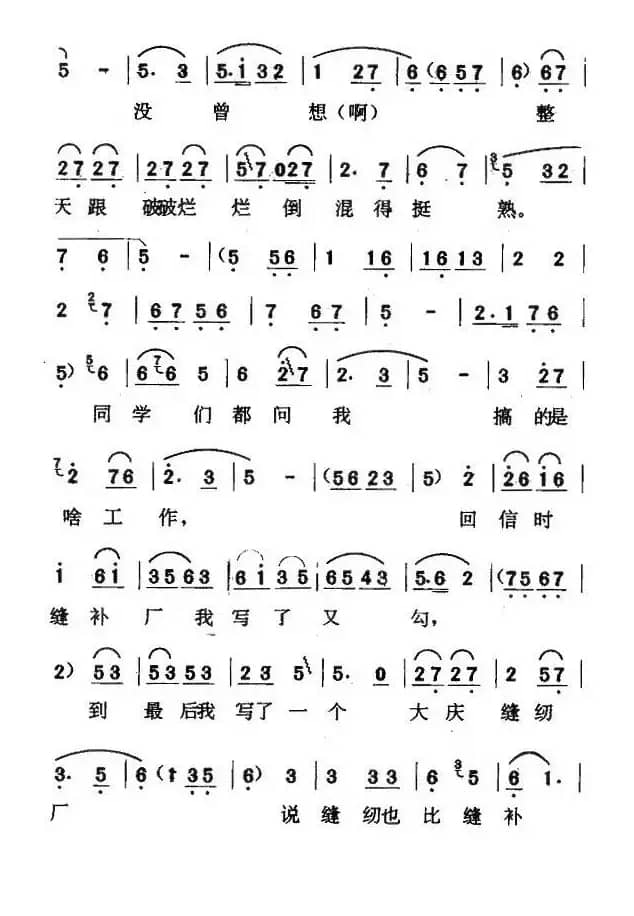 5 - | 5. 3 | 5.i 32 | 1 27 | 6 (6 57 | 6) 67 |
没 曾 想(啊) 整
27 27 | 27 27 | 57 027 | 2. 7 | 6 7 | 3 5 32 |
天跟 破破烂 烂倒 混得挺 熟。
7 6 | 5 - | (5 56 | 1 16 | 16 13 | 2 2 |
2 2 7 | 67 56 | 7 67 | 5 - | 2.1 76 |
5) 5 6 | 6 7 6 5 | 6 27 | 2. 3 | 5 - | 3 27 |
同学 们都问 我 搞的是
7 2 76 | 2. 3 | 5 - | (56 23 | 5) 2 | 26 i6 |
啥工 作, 回信时
i 6i | 35 63 | 6i 35 | 65 43 | 5.6 2 | (75 67 |
缝补 厂 我写了又 勾,
2) 53 | 53 53 | 23 5 | 5. 0 | 27 27 | 2 57 |
到 最后我 写了一个 大庆 缝纫
3. 5 | 6 (1 35 | 6) 3 | 3 33 | 6 3 5 | 6 1. |
厂 说缝纫也比缝补